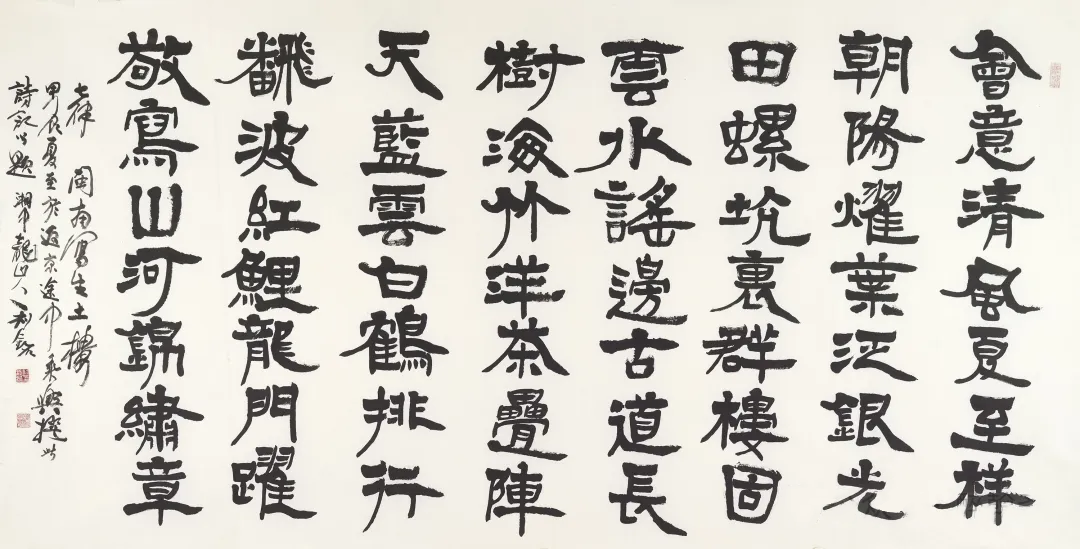 會意清風夏至祥
朝陽燿葉泛銀光
田螺坑裏群樓固
雲水謠邊古道長
樹海竹洋茶疊陣
天藍雲白鶴排行
飜波紅鯉龍門躍
敬寫山河錦繡章
七律 閩南寫生土樓
甲辰夏至於返京途中乘興撰此
詩記以題 湘龍山人